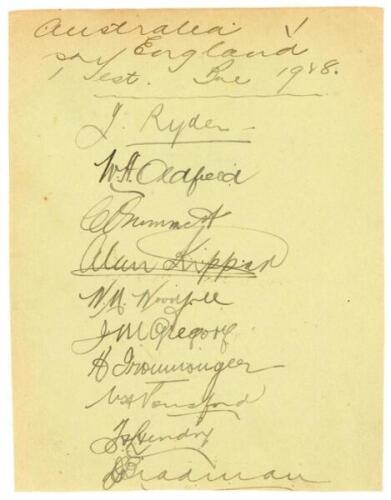 Australia V
England
1 Test. Bne 1928.
J. Ryder
W.A. Oldfield
C Grimmett
Alan Kippax
W.M. Woodfull
J M Gregory
H Ironmonger
W H Ponsford
Hendry
D Bradman